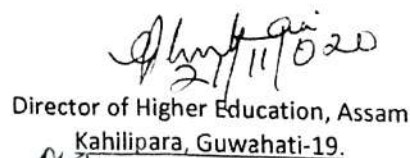 2/11/020
Director of Higher Education, Assam
Kahilipara, Guwahati-19.